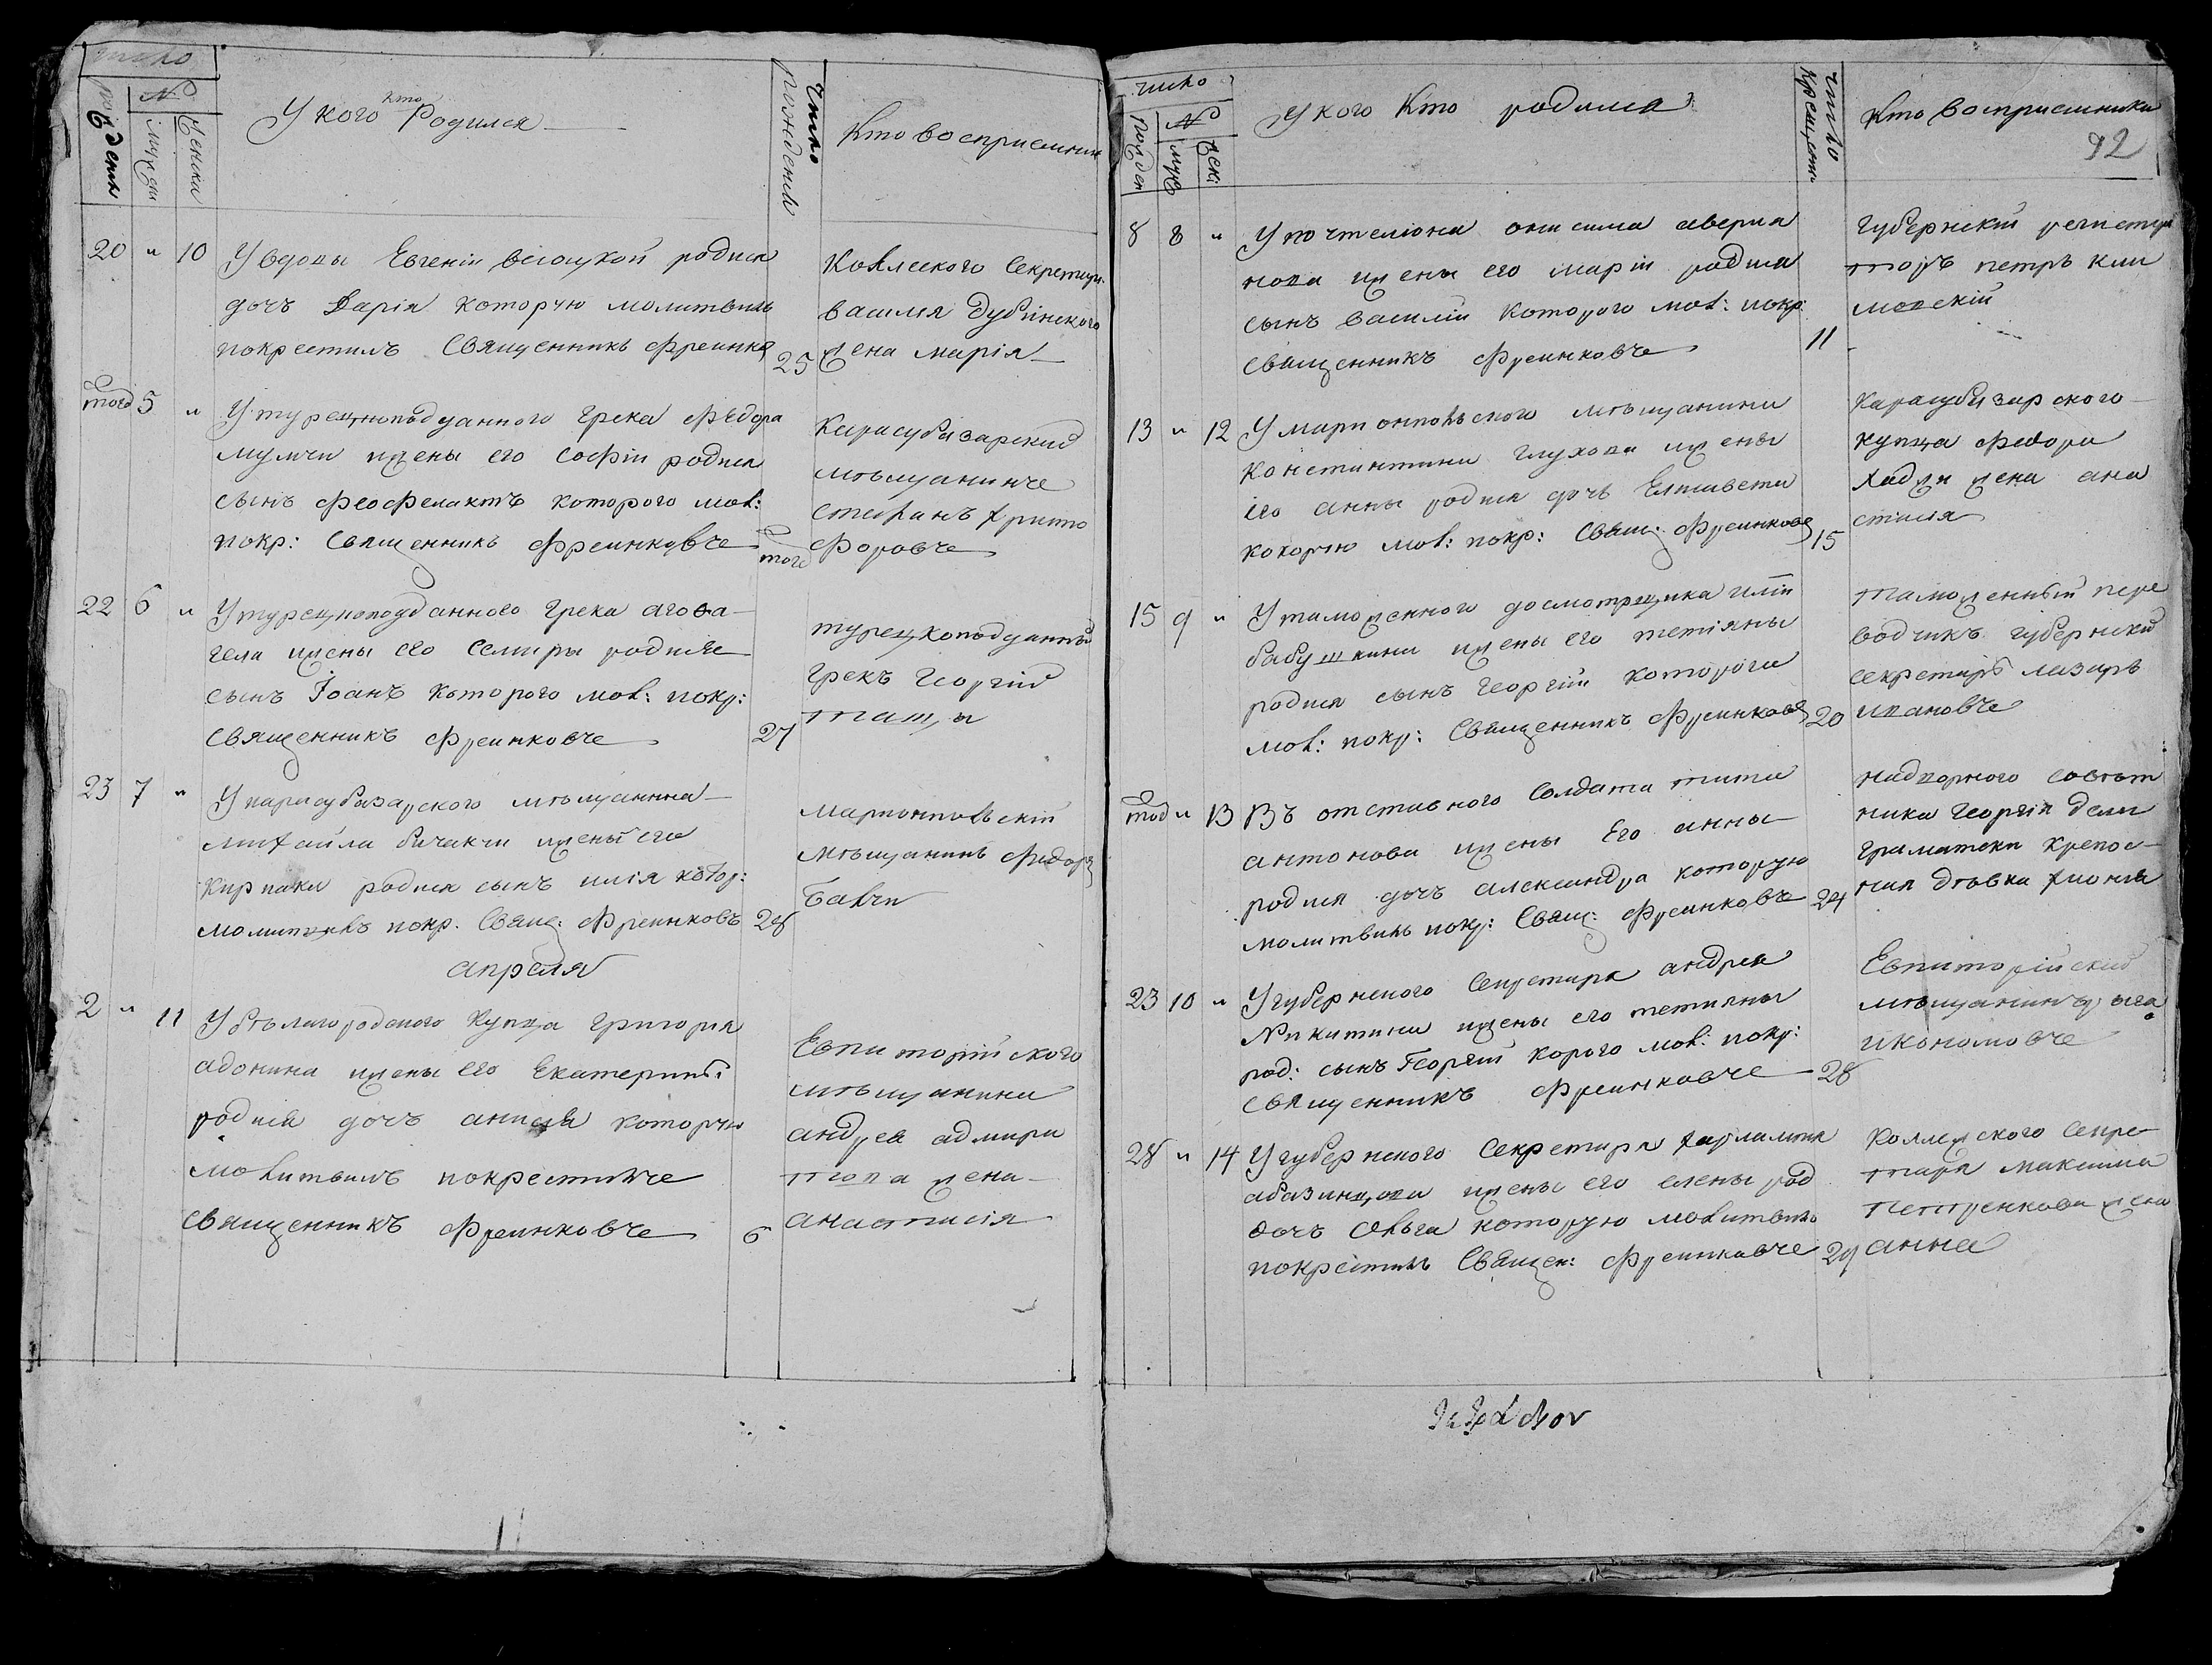 число
рожденія
№
мужеск
женски
У кого кто Родился
число рожденія
Кто восприемник
20 " 10 У вдовы Евгеніи
родися
дочъ Дарія которую молитвилъ
покрестилъ Священникъ Френко
25
Коллеского Секретаря
василя Дубинского
жена марія
того 5 " У турецкоподданного грека Федора
жены его Софіи родися
сынъ Феофелактъ которого мол:
покр: Священникъ Френковче
того
Карасубазарский
мѣщанинче
стефанъ христо
форовче
22 6 " У турецкоподданного грека агоѳа
гела жены его Семиры родился
сынъ Іоанъ которого мол: покр:
Священникъ Френковче
27
турецкоподданный
Грекъ Георгій
23 7 " У карасубазарского мѣщанина
михаила бичакчи жены его
Кирпаки родися сынъ илія котор:
молитвилъ покр. Свящ: Френковъ
28
маріонпольскій
мѣщанинъ Федоръ
Балчи
апреля
2 " 11 У бѣлагородского купца Григорія
адонина жены его Екатерины
родися дочъ которую
молитвилъ покрестилче
священникъ Френковче
6
Евпиторійского
мѣщанина
андрея адмира
това жена
анастасія
число
рожден
№
муж
женс
У кого Кто родился
число крещенія
Кто восприемники
92
8 8 " У почтеліона онисима аверия
нова жены его маріи родися
сынъ василіи которого мол: покр:
священникъ Френковче
11
Губернскій регистра
торъ петръ кли
мовскій
13 " 12 У мариопольского мѣщанина
Константина глухова жены
его анны родися дочъ Елисавета
которую мол: покр: Свящ: Френкове
15
Карасубазарского
купца Федора
Хаджи жена ана
стасія
15 9 " У таможенного досмотрщика иліи
бабушкина жены его тетіяны
родися сынъ георгіи которога
мол: покр: Священникъ Френкове
20
таможенный пере
водчикъ губернский
секретарь лазаръ
ивановче
тод " 13 Въ отставного Солдата тита
антонова жены Его анны
родися дочъ александра которую
молитвилъ покр: Свящ: Френковче
24
надворного совѣт
ника Георгія Дели
граматеки крепос
ная дѣвка
23 10 " У губернского Секретаря андрея
Никитина жены его тетияны
род: сынъ Георгій которого мол: покр:
священникъ Френковче
28
Евпиторійский
мѣщанинъ
икономовче
28 " 14 У губернского Секретаря харлампия
абазинцова жены его елены род
дочъ Ольга которую молитвилъ
покрестилъ Священ: Френковче
29
Коллежского Секре
таря максима
Петренкова жена
анна